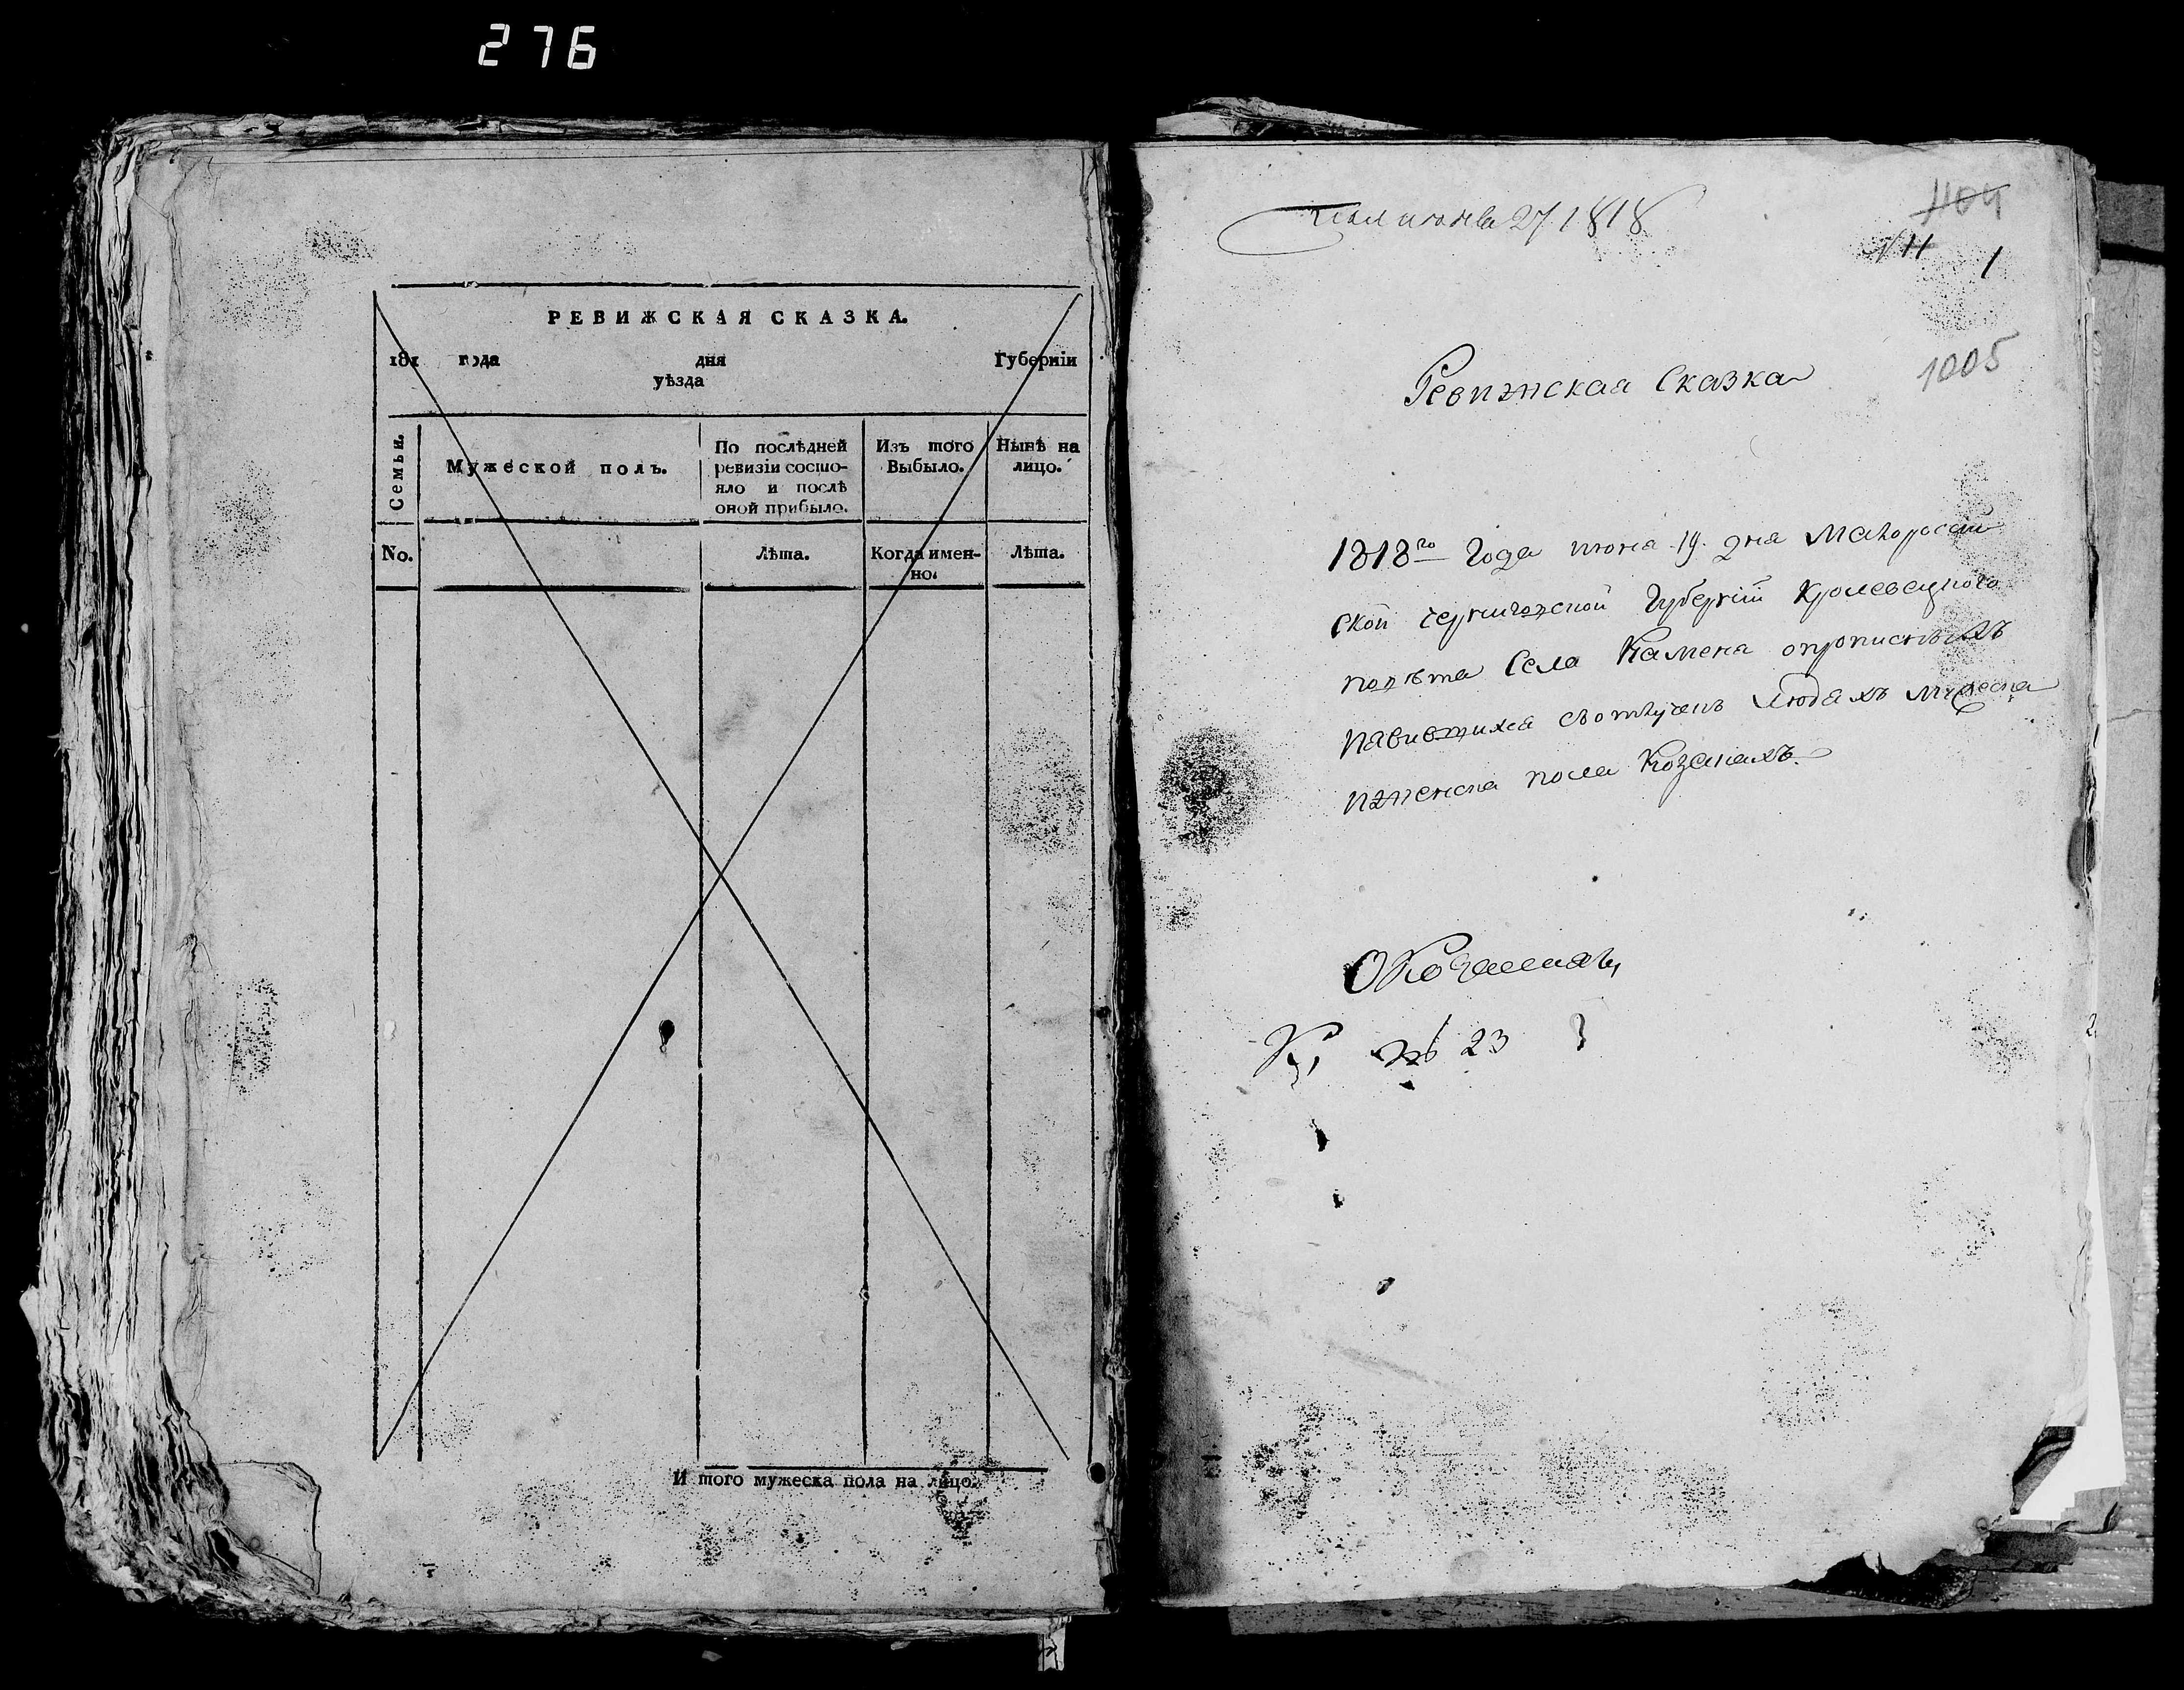 276
РЕВИЖСКАЯ СКАЗКА.
181 года дня Губерніи
уѣзда
Семьи.
Мужеской полъ.
По послѣдней ревизіи состояло и послѣ оной прибыло.
Изъ того Выбыло.
Нынѣ на лицо.
No.
Лѣта.
Когда именно.
Лѣта.
И того мужеска пола на лицо.
июня 27 1818
1104
N 11 1
1005
Ревижская Сказка
1818го Года июня 19 дня Малоросій
ской Черниговской Губерніи Кролевецкого
повѣта Села Каменя опрописныхъ
явившихся съотлучекъ людяхъ мужеска
иженска пола Козакахъ.
О Козакахъ
№ 23